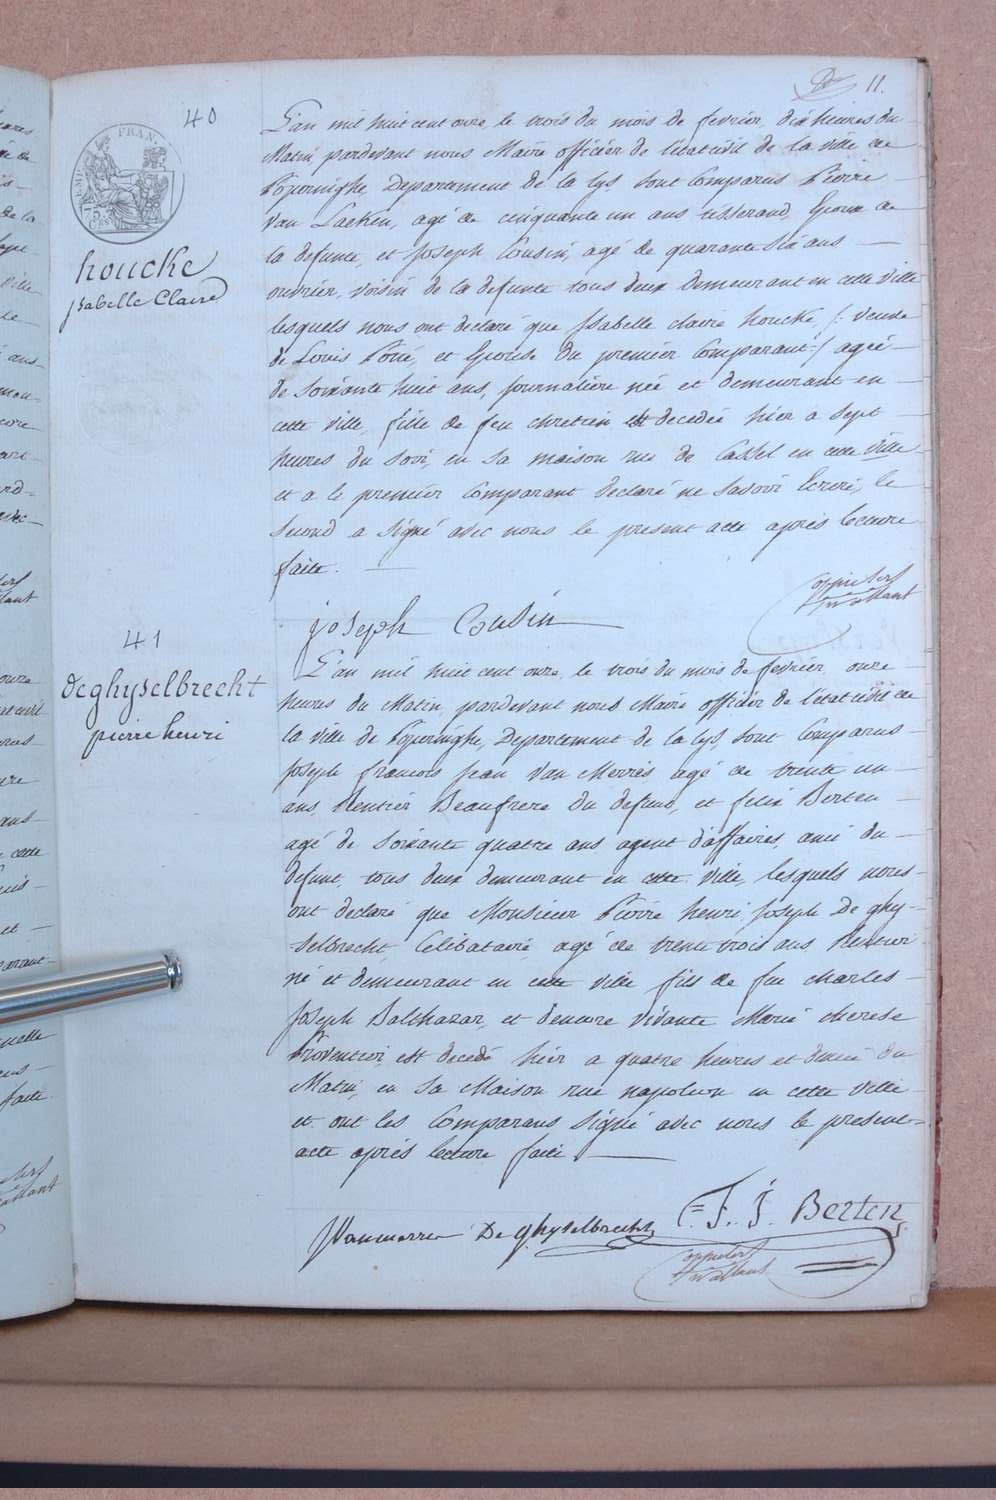 11.
40
EMP. FRANÇ.
75
CES
houcke
jsabelle Claire
L'an mil huit cent onze, le trois du mois de fevrier, dix heures du
Matin pardevant nous Maire officier de l'etat civil de la ville de
Poperinghe Departement de la Lys sont Comparus Pierre
Van Laeken, agé de cinquante un ans tisserand, Epoux de
la defunte, et Joseph Cousin, agé de quarante six ans
ouvrier, voisin de la defunte tous deux demeurant en cette ville
lesquels nous ont declaré que Jsabelle claire houcke, /: veuve
de Louis Potié, et Epouse du premier Comparant :/ agée
de soixante huit ans, journaliere née et demeurant en
cette ville, fille de feu chretien est decedée hier à sept
heures du soir, en sa maison rue de Cassel en cette ville
et a le premier Comparant declaré ne savoir Ecrire, le
second a signé avec nous le present acte après lecture
faite.
joseph Cousin
41
deghyselbrecht
pierre henri
L'an mil huit cent onze, le trois du mois de fevrier, onze
heures du Matin, pardevant nous Maire officier de l'etat civil de
la ville de Poperinghe, Departement de la Lys, sont Comparus
Joseph francois Jean Van Merris agé de trente un
ans, Rentier Beaufrere du defunt, et felix Berten
agé de soixante quatre ans agent d'affaires, ami du
defunt, tous deux demeurant en cette ville, lesquels nous
ont declaré que Monsieur Pierre henri Joseph De ghy-
selbrecht, Celibataire, agé de trente trois ans Rentier
né et demeurant en cette ville fils de feu charles
Joseph Balthazar, et d'encore vivante Marie therese
Proventier, est decedé hier a quatre heures et demie du
Matin, en sa Maison rue napoleon en cette ville
et ont les Comparans signé avec nous le present
acte après lecture faite
JVanmerris De ghyselbrecht F. J. Berten